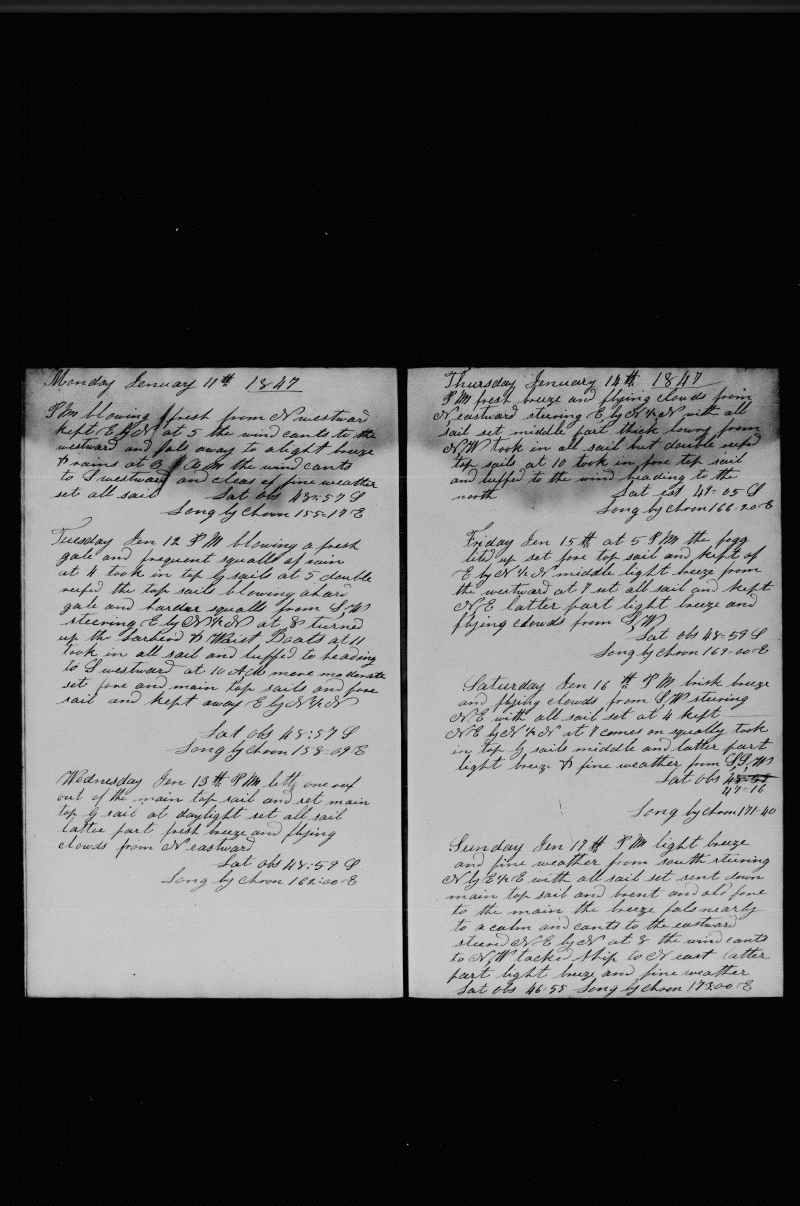 Monday Jenuary 11th 1847
P M blowing fresh from N westward
kept E by N at 5 the wind cants to the
westward and fals away to a light breeze
& rains at 8 A M the wind cants
to S westward and clear of fine weather
set all sail Lat obs 48=57 S
Long by chron 155=17 E
Tuesday Jen 12 P M blowing a fresh
gale and frequent squalls of rain
at 4 took in top g sails at 5 double
reefd the top sails blowing a hard
gale and harder squalls from S W
steering E by N ½ N at 8 turned
up the Larbord & Waist Boats at 11
took in all sail and luffed to heading
to S westward at 10 A M more moderate
set fore and main top sails and fore
sail and kept away E by N ½ N
Lat obs 48=57 S
Long by chron 158=09 E
Wednesday Jen 13th P M lett one reef
out of the main top sail and set main
top g sail at daylight set all sail
latter part fresh breeze and flying
clowds from N eastward
Lat obs 48:59 S
Long by chron 166:00 E
Thursday Jenuary 14th 1847
P M fresh breeze and flying clowds from
N eastward steering E by N ½ N with all
sail set middle part thick lowry from
N W took in all sail but double reefd
top sails at 10 took in fore top sail
and luffed to the wind heading to the
north Lat est 49=05 S
Long by chron 166=20 E
Friday Jen 15th at 5 P M the fogg
lits up set fore top sail and kept of
E by N ½ N middle light breeze from
the westward at 7 set all sail and kept
N E latter part light breeze and
flying clowds from S W
Lat obs 48=59 S
Long by chron 169=00 E
Saturday Jen 16th P M brisk breeze
and flying clowds from S W steering
N E with all sail set at 4 kept
N E by N ½ N at 7 comes on squally took
in top g sails middle and latter part
light breeze & fine weather from S S W
Lat obs 48=58
47=16
Long by chron 171=40
Sunday Jen 17th P M light breeze
and fine weather from south steering
N by E ½ E with all sail set sent down
main top sail and brent and old fone
to the main the breeze fals nearly
to a calm and cants to the eastward
steered N E by N at 8 the wind cants
to N W tacked ship to N east latter
part light breeze and fine weather
Lat obs 46=55 Long by chron 173:00 E